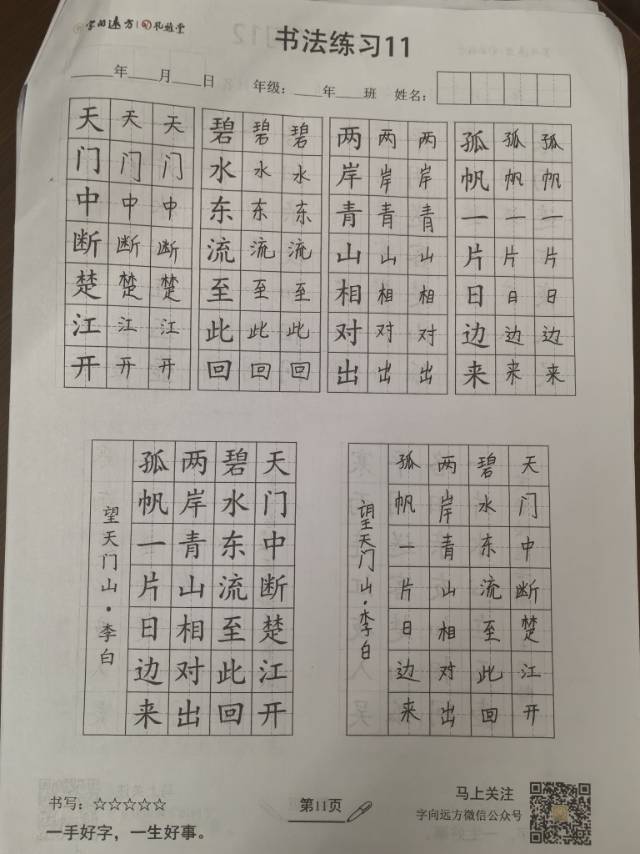 字向远方 礼益堂
书法练习11
年 月 日 年级： 年 班 姓名：
天 天 天 碧 碧 碧 两 两 两 孤 孤 孤
门 门 门 水 水 水 岸 岸 岸 帆 帆 帆
中 中 中 东 东 东 青 青 青 一 一 一
断 断 断 流 流 流 山 山 山 片 片 片
楚 楚 楚 至 至 至 相 相 相 日 日 日
江 江 江 此 此 此 对 对 对 边 边 边
开 开 开 回 回 回 出 出 出 来 来 来
天门中断楚江开
碧水东流至此回
两岸青山相对出
孤帆一片日边来
望天门山·李白
天门中断楚江开
碧水东流至此回
两岸青山相对出
孤帆一片日边来
望天门山·李白
书写：☆☆☆☆☆
一手好字，一生好事。
第11页
马上关注
字向远方微信公众号